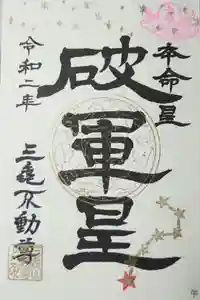 本命星
破軍星
令和二年
三亀不動尊